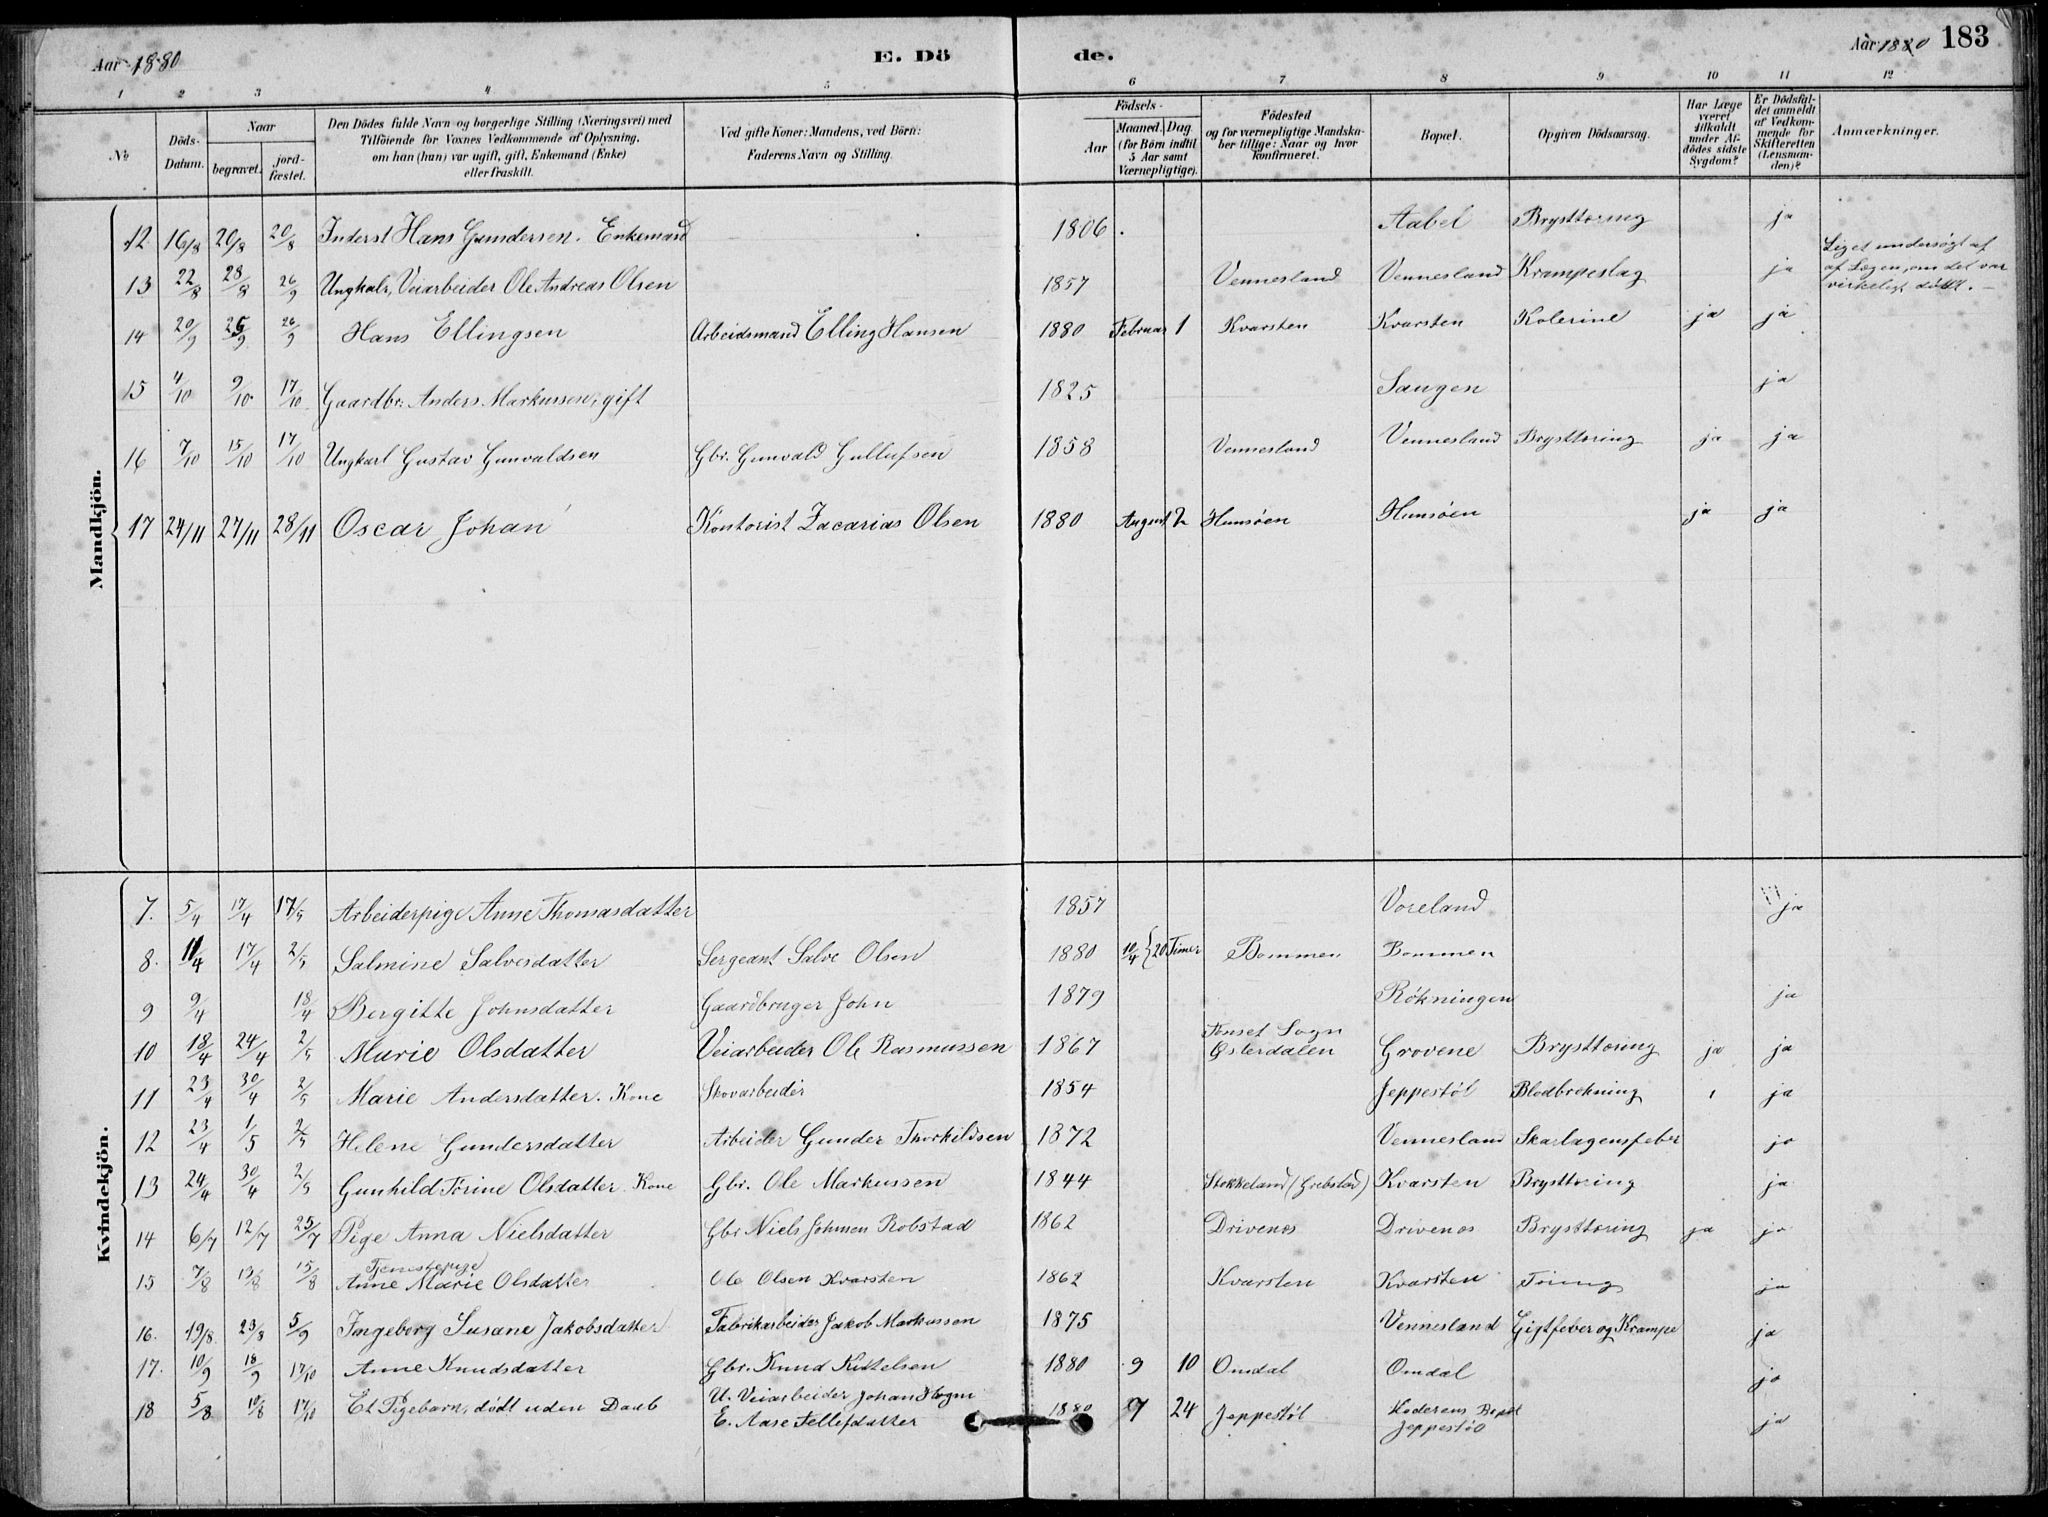 Aar 1880 E. Dö de. Aar 1880 183
1 2 3 4 5 6 7 8 9 10 11 12
No
Döds-Datum.
Naar
begravet.
jord-fæstet.
Den Dödes fulde Navn og borgerlige Stilling (Næringsvei) med
Tilföiende for Voxnes Vedkommende af Oplysning,
om han (hun) var ugift, gift, Enkemand (Enke)
eller fraskilt.
Ved gifte Koner: Mandens, ved Börn:
Faderens Navn og Stilling.
Födsels-
Aar
Maaned. Dag.
(for Börn indtil
5 Aar samt
Værnepligtige).
Födested
og for værnepligtige Mandska-
ber tillige: Naar og hvor
konfirmeret.
Bopæl.
Opgiven Dödsaarsag.
Har Læge
været
tilkaldt
under Af-
dödes sidste
Sygdom?
Er Dödsfal-
det anmeldt
af Vedkom-
mende for
Skifteretten
(Lensman-
den)?
Anmærkninger.
Mandkjön.
12 16/8 20/8 20/8 Inderst Hans Gundersen. Enkemand 1806 Aabel Brysttæring ja
13 22/8 28/8 26/9 Ungkarl, Veiarbeider Ole Andreas Olsen 1857 Vennesland Vennesland Krampeslag ja Liget undersøgt af
af Lægen, om det var
virkeligt dødt. –
14 20/9 25/9 26/9 Hans Ellingsen Arbeidsmand Elling Hansen 1880 Februar 1 Kvarsten Kvarsten Kolerine ja ja
15 4/10 9/10 17/10 Gaardbr. Anders Markussen, gift 1825 Saugen ja
16 7/10 15/10 17/10 Ungkarl Gustav Gunvaldsen Gbr. Gunvald Gullufsen 1858 Vennesland Vennesland Brysttæring ja ja
17 24/11 27/11 28/11 Oscar Johan Kontorist Zacarias Olsen 1880 August 2 Hunsøen Hunsøen ja ja
Kvindekjön.
7. 5/4 17/4 17/5 Arbeiderpige Anne Thomasdatter 1857 Voreland ja
8. 11/4 17/4 2/5 Salmine Salvesdatter Sergeant Salve Olsen 1880 10/4 { 20 Timer Bommen Bommen
9 9/4 18/4 Bergitte Johnsdatter Gaardbruger John 1879 Røkningen ja
10 18/4 24/4 2/5 Marie Olsdatter Veiarbeider Ole Rasmussen 1867 Tønset Sogn
Østerdalen Grovene Brysttæring ja ja
11 23/4 30/4 2/5 Marie Andersdatter. Kone Skovarbeider 1854 Jeppestøl Blodbrækning ja
12 23/4 1/5 2/5 Helene Gundersdatter Arbeider Gunder Thorkildsen 1872 Vennesland Skarlagensfeber ja
13 24/4 30/4 2/5 Gunhild Trine Olsdatter. Kone Gbr. Ole Markussen 1844 Stokkeland (Grebstad) Kvarsten Brysttæring ja
14 6/7 12/7 25/7 Pige Anna Nielsdatter Gbr Niels Johnsen Robstad 1862 Drivenes Drivenes Brysttæring ja ja
15 7/8 13/8 15/8 Tjenestepige
Anne Marie Olsdatter Ole Olsen Kvarsten 1862 Kvarsten Kvarsten Tæring ja
16. 19/8 23/8 5/9 Ingeborg Susane Jakobsdatter Fabrikarbeider Jakob Markussen 1875 Vennesland Gigtfeber og Krampe ja
17. 10/9 18/9 17/10 Anne Knudsdatter Gbr. Knud Kittelsen 1880 9 10 Omdal Omdal ja
18 5/8 10/8 17/10 Et Pigebarn, dødt uden Daab U. Veiarbeider Johan
E. Aase Tellefdatter 1880 7 24 Jeppestøl Moderens Bopæl
Jeppestøl ja